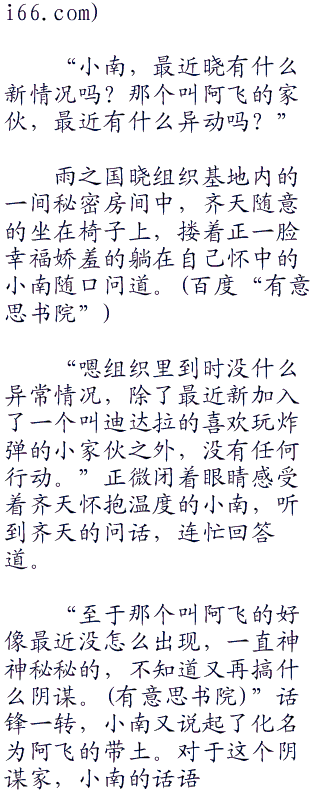 i66.com)
“小南，最近晓有什么
新情况吗？那个叫阿飞的家
伙，最近有什么异动吗？”
雨之国晓组织基地内的
一间秘密房间中，齐天随意
的坐在椅子上，搂着正一脸
幸福娇羞的躺在自己怀中的
小南随口问道。(百度“有意
思书院”)
“嗯组织里到时没什么
异常情况，除了最近新加入
了一个叫迪达拉的喜欢玩炸
弹的小家伙之外，没有任何
行动。”正微闭着眼睛感受
着齐天怀抱温度的小南，听
到齐天的问话，连忙回答
道。
“至于那个叫阿飞的好
像最近没怎么出现，一直神
神秘秘的，不知道又再搞什
么阴谋。(有意思书院)”话
锋一转，小南又说起了化名
为阿飞的带土。对于这个阴
谋家，小南的话语